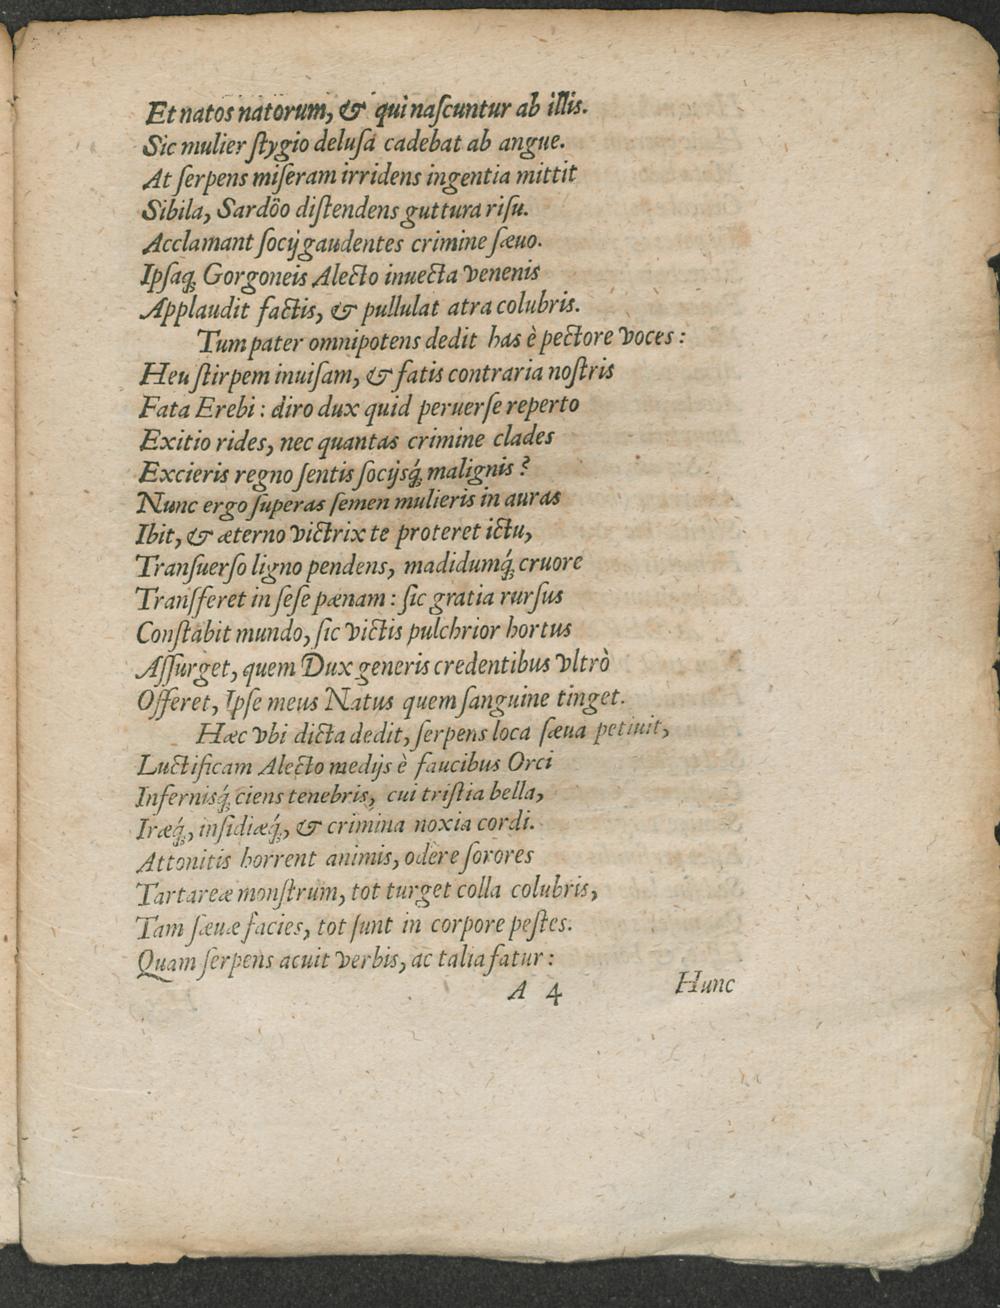 Et natos natorum, & qui naſcuntur ab illis.
Sic mulier ſtygio deluſa cadebat ab angue.
At ſerpens miſeram irridens ingentia mittit
Sibila, Sardöo diſtendens guttura riſu.
Acclamant ſocij gaudentes crimine ſæuo.
Ipſaq́; Gorgoneis Alecto inuecta venenis
Applaudit factis, & pullulat atra colubris.
Tum pater omnipotens dedit has è pectore voces :
Heu ſtirpem inuiſam, & fatis contraria noſtris
Fata Erebi : diro dux quid peruerſe reperto
Exitio rides, nec quantas crimine clades
Excieris regno ſentis ſocijsq́; malignis ?
Nunc ergo ſuperas ſemen mulieris in auras
Ibit, & æterno victrix te proteret ictu,
Tranſuerſo ligno pendens, madidumq́; cruore
Tranſferet in ſeſe pænam : ſic gratia rurſus
Conſtabit mundo, ſic victis pulchrior hortus
Aſſurget, quem Dux generis credentibus vltrò
Offeret, Ipſe meus Natus quem ſanguine tinget.
Hæc vbi dicta dedit, ſerpens loca ſæua petiuit,
Luctificam Alecto medijs è faucibus Orci
Infernisq́; ciens tenebris, cui triſtia bella,
Iræq́;, inſidiæq́;, & crimina noxia cordi.
Attonitis horrent animis, odere ſorores
Tartareæ monſtrum, tot turget colla colubris,
Tam ſæuæ facies, tot ſunt in corpore peſtes.
Quam ſerpens acuit verbis, ac talia fatur :
A 4 Hunc